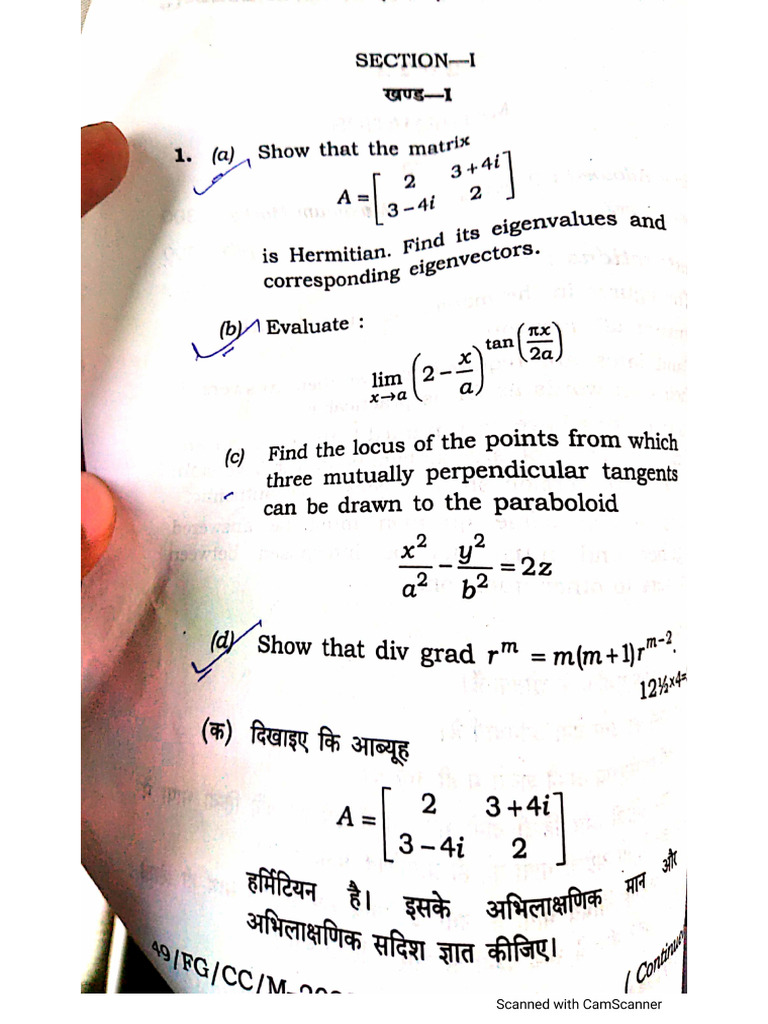 SECTION—I
खण्ड—I
1. (a) Show that the matrix
A = [ 2 3 + 4i
3 – 4i 2 ]
is Hermitian. Find its eigenvalues and
corresponding eigenvectors.
(b) Evaluate :
lim x→a (2 – x/a)^tan(πx/2a)
(c) Find the locus of the points from which
three mutually perpendicular tangents
can be drawn to the paraboloid
x²/a² – y²/b² = 2z
(d) Show that div grad r^m = m(m+1)r^(m–2).
12½×4=
(क) दिखाइए कि आब्यूह
A = [ 2 3 + 4i
3 – 4i 2 ]
हर्मिटियन है। इसके अभिलाक्षणिक मान और
अभिलाक्षणिक सदिश ज्ञात कीजिए।
49/FG/CC/M-20
( Continue
Scanned with CamScanner